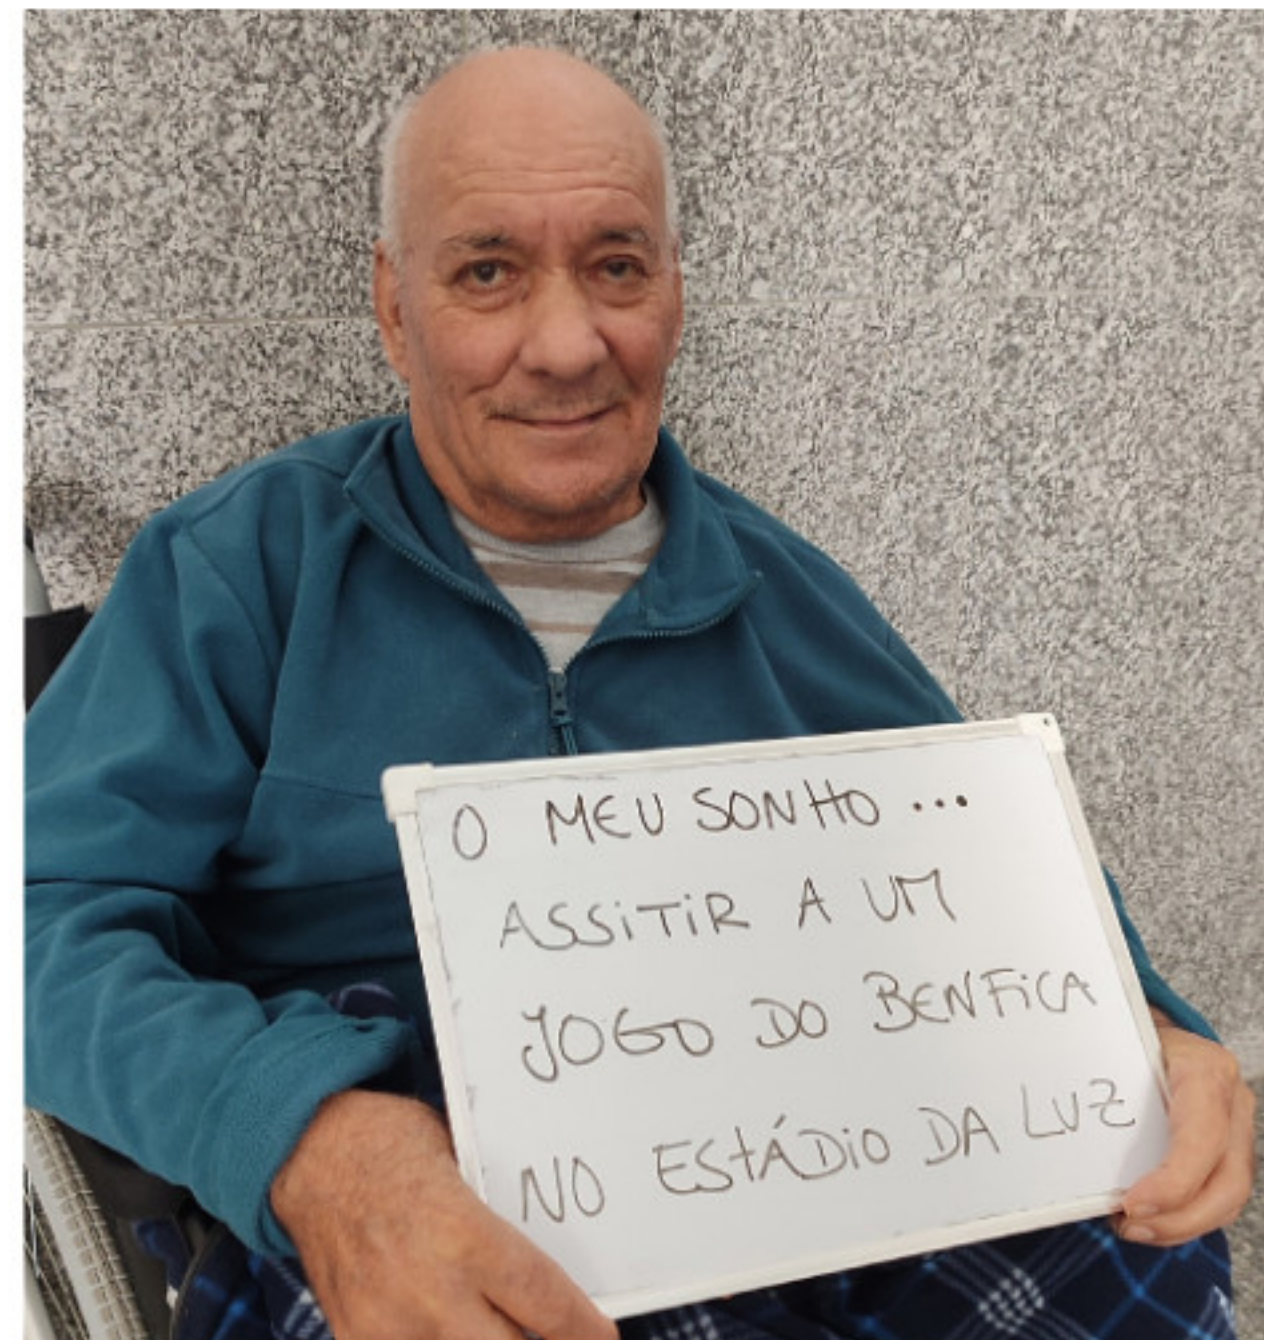 O MEU SONHO ...
ASSITIR A UM
JOGO DO BENFICA
NO ESTÁDIO DA LUZ